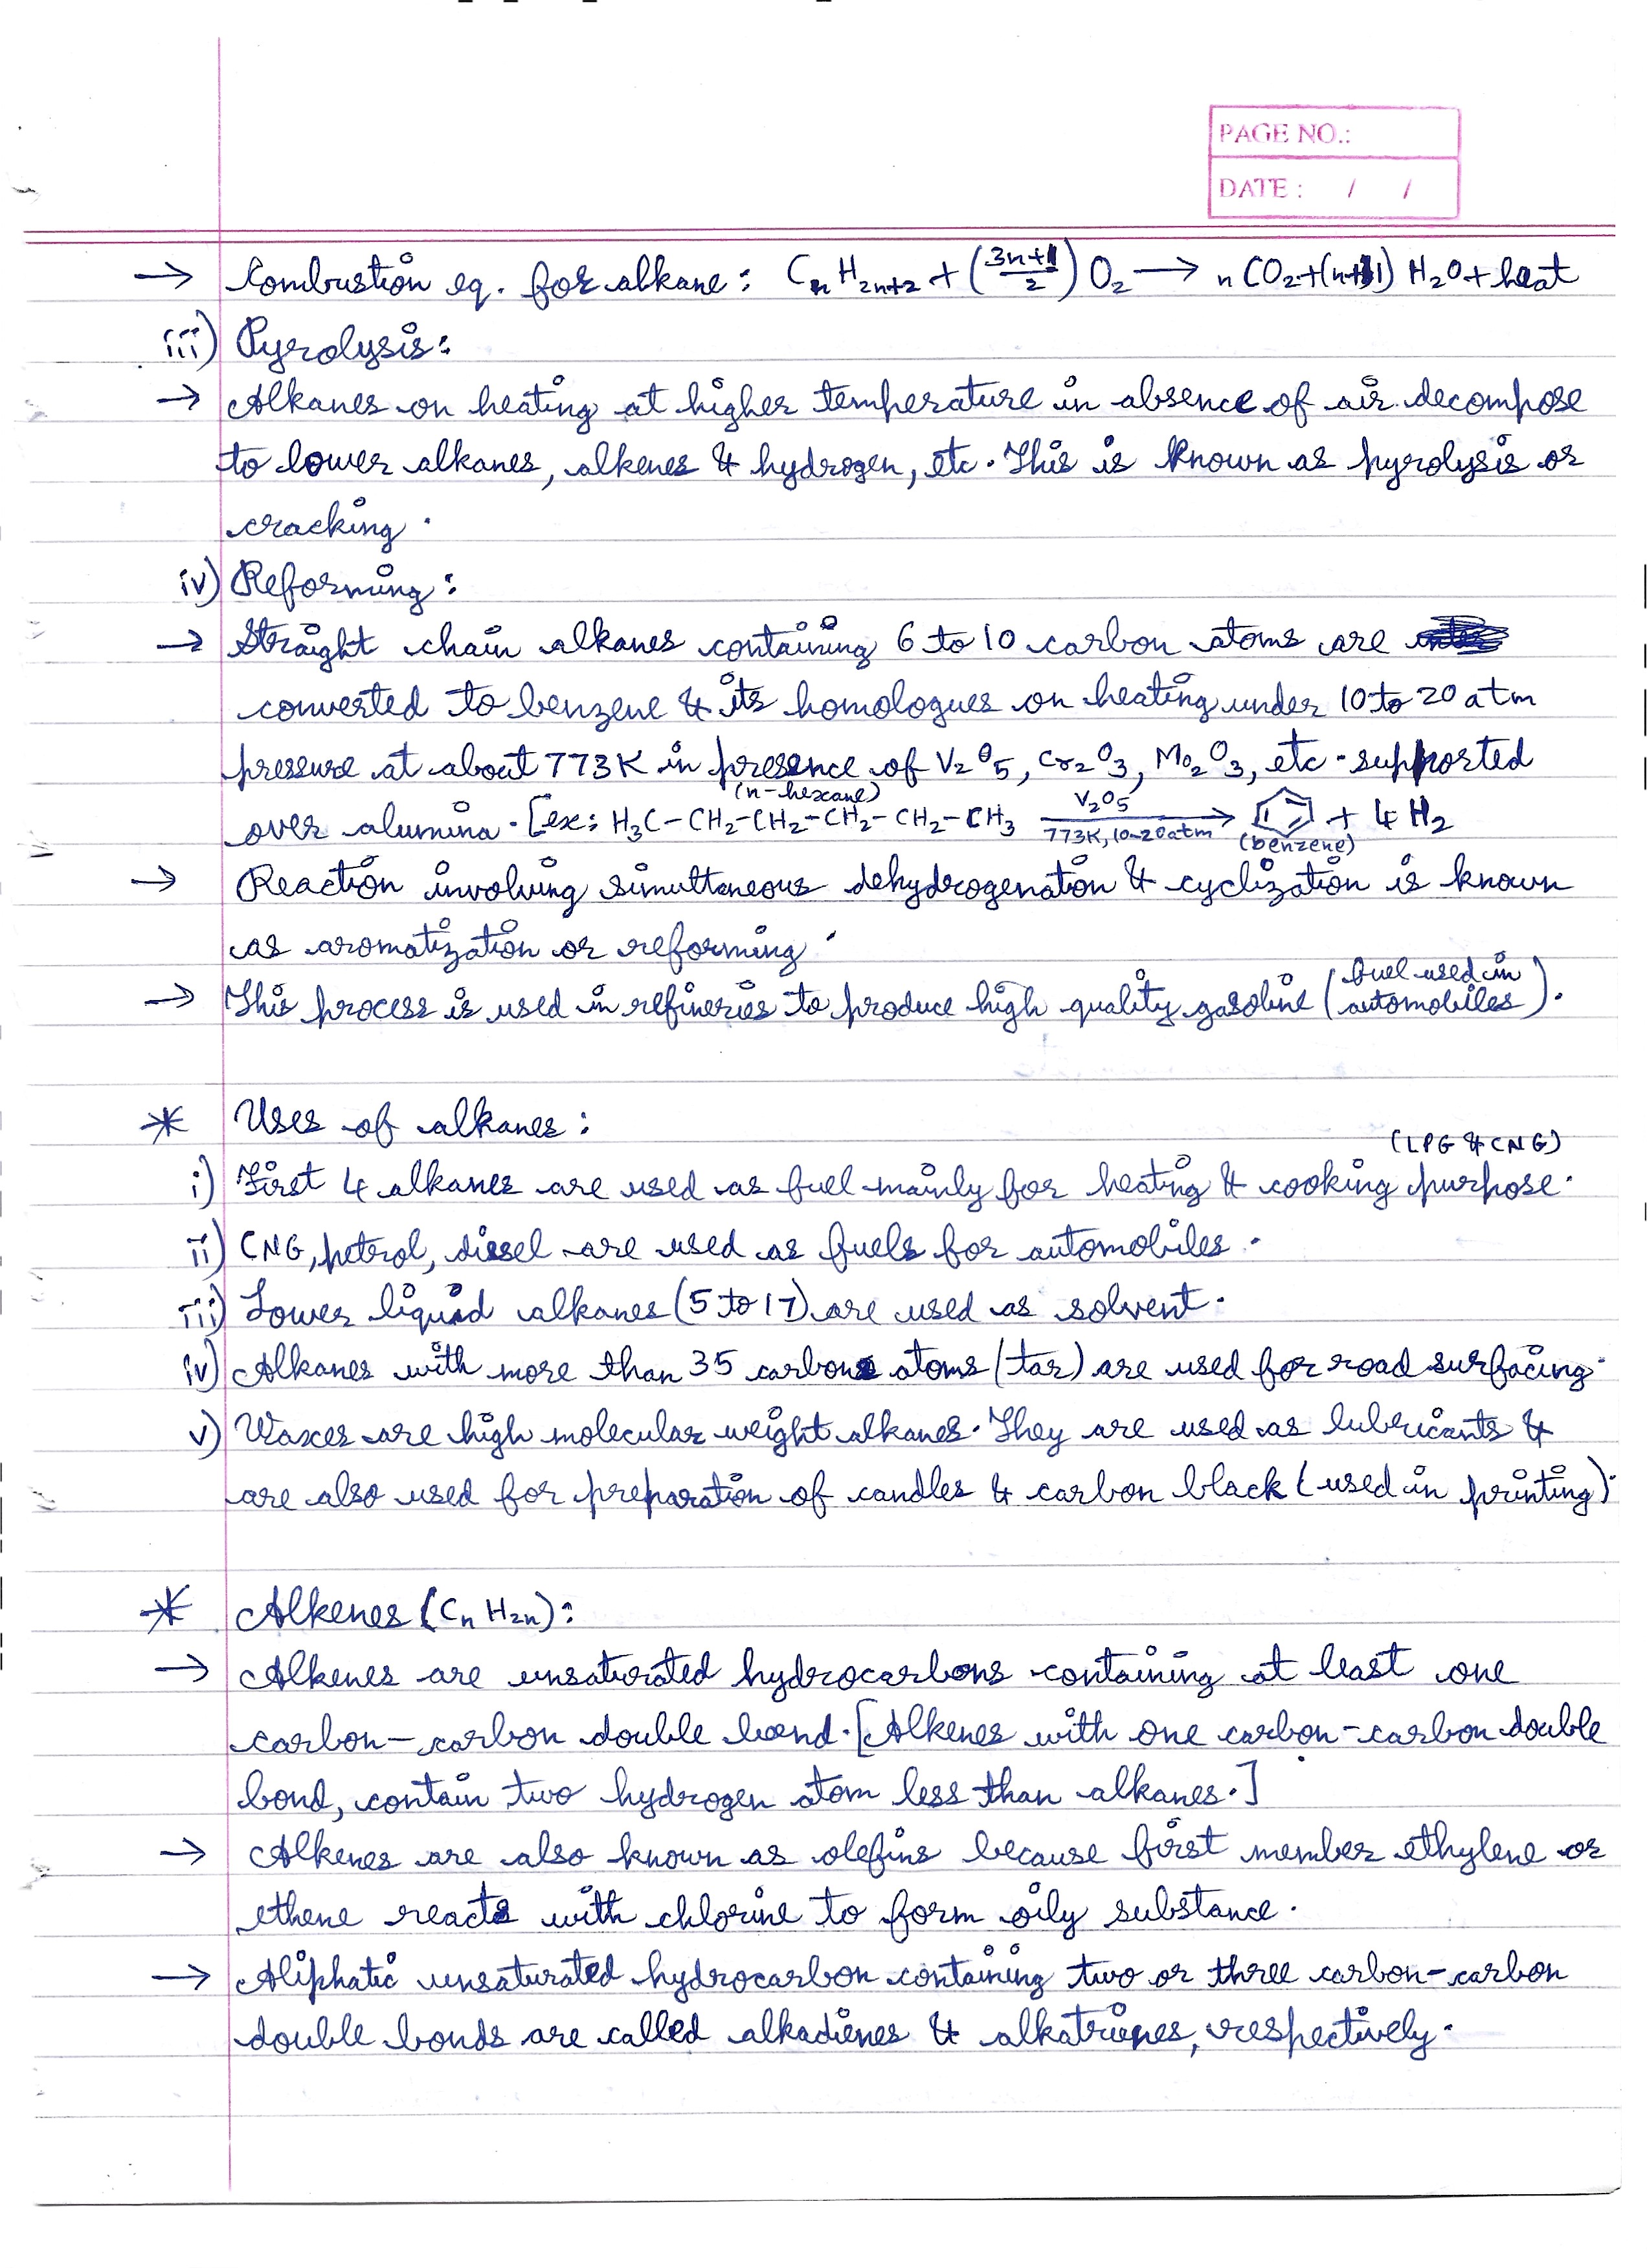 PAGE NO.:
DATE : / /
→ Combustion eq. for alkane : CnH2n+2 + (3n+1/2) O2 → n CO2 + (n+1) H2O + heat
iii) Pyrolysis :
→ Alkanes on heating at higher temperature in absence of air decompose
to lower alkanes, alkenes & hydrogen, etc. This is known as pyrolysis or
cracking.
iv) Reforming :
→ Straight chain alkanes containing 6 to 10 carbon atoms are
converted to benzene & its homologues on heating under 10 to 20 atm
pressure at about 773K in presence of V2O5, Cr2O3, Mo2O3, etc. supported
(n-hexane)
over alumina. [ex: H3C-CH2-CH2-CH2-CH2-CH3 V2O5 773K, 10-20atm → (benzene) + 4H2
→ Reaction involving simultaneous dehydrogenation & cyclization is known
as aromatization or reforming.
→ This process is used in refineries to produce high quality gasoline (fuel used in automobiles).
* Uses of alkanes :
(LPG & CNG)
i) First 4 alkanes are used as fuel mainly for heating & cooking purpose.
ii) CNG, petrol, diesel are used as fuels for automobiles.
iii) Lower liquid alkanes (5 to 17) are used as solvent.
iv) Alkanes with more than 35 carbon atoms (tar) are used for road surfacing.
v) Waxes are high molecular weight alkanes. They are used as lubricants &
are also used for preparation of candles & carbon black (used in printing).
* Alkenes (CnH2n) :
→ Alkenes are unsaturated hydrocarbons containing at least one
carbon-carbon double bond. [Alkenes with one carbon-carbon double
bond, contain two hydrogen atom less than alkanes.]
→ Alkenes are also known as olefins because first member ethylene or
ethene reacts with chlorine to form oily substance.
→ Aliphatic unsaturated hydrocarbon containing two or three carbon-carbon
double bonds are called alkadienes & alkatrienes, respectively.